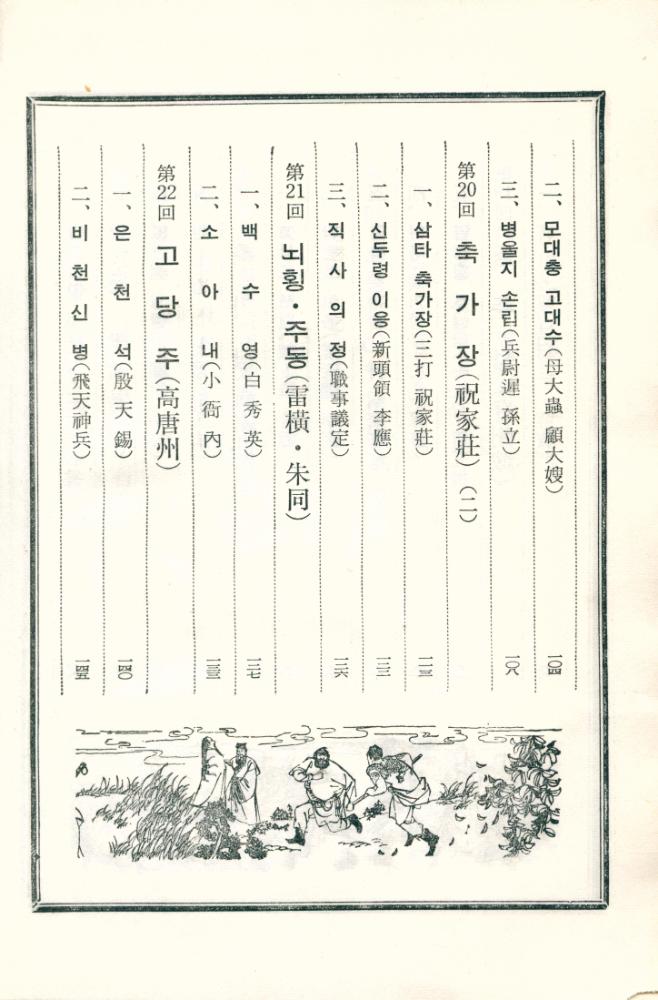 二、모대충 고대수(母大蟲 顧大嫂) 一〇四
三、병울지 손립(兵尉遲 孫立) 一〇八
第20回 축 가 장(祝家莊) (二)
一、삼타 축가장(三打 祝家莊) 一一三
二、신두령 이응(新頭領 李應)
三、직 사 의 정(職事議定) 一二六
第21回 뇌횡・주동(雷橫・朱同)
一、백 수 영(白 秀 英) 一二七
二、소 아 내(小 衙 內) 一三三
第22回 고 당 주(高唐州)
一、은 천 석(殷 天 錫) 一四〇
二、비 천 신 병(飛天神兵) 一四五